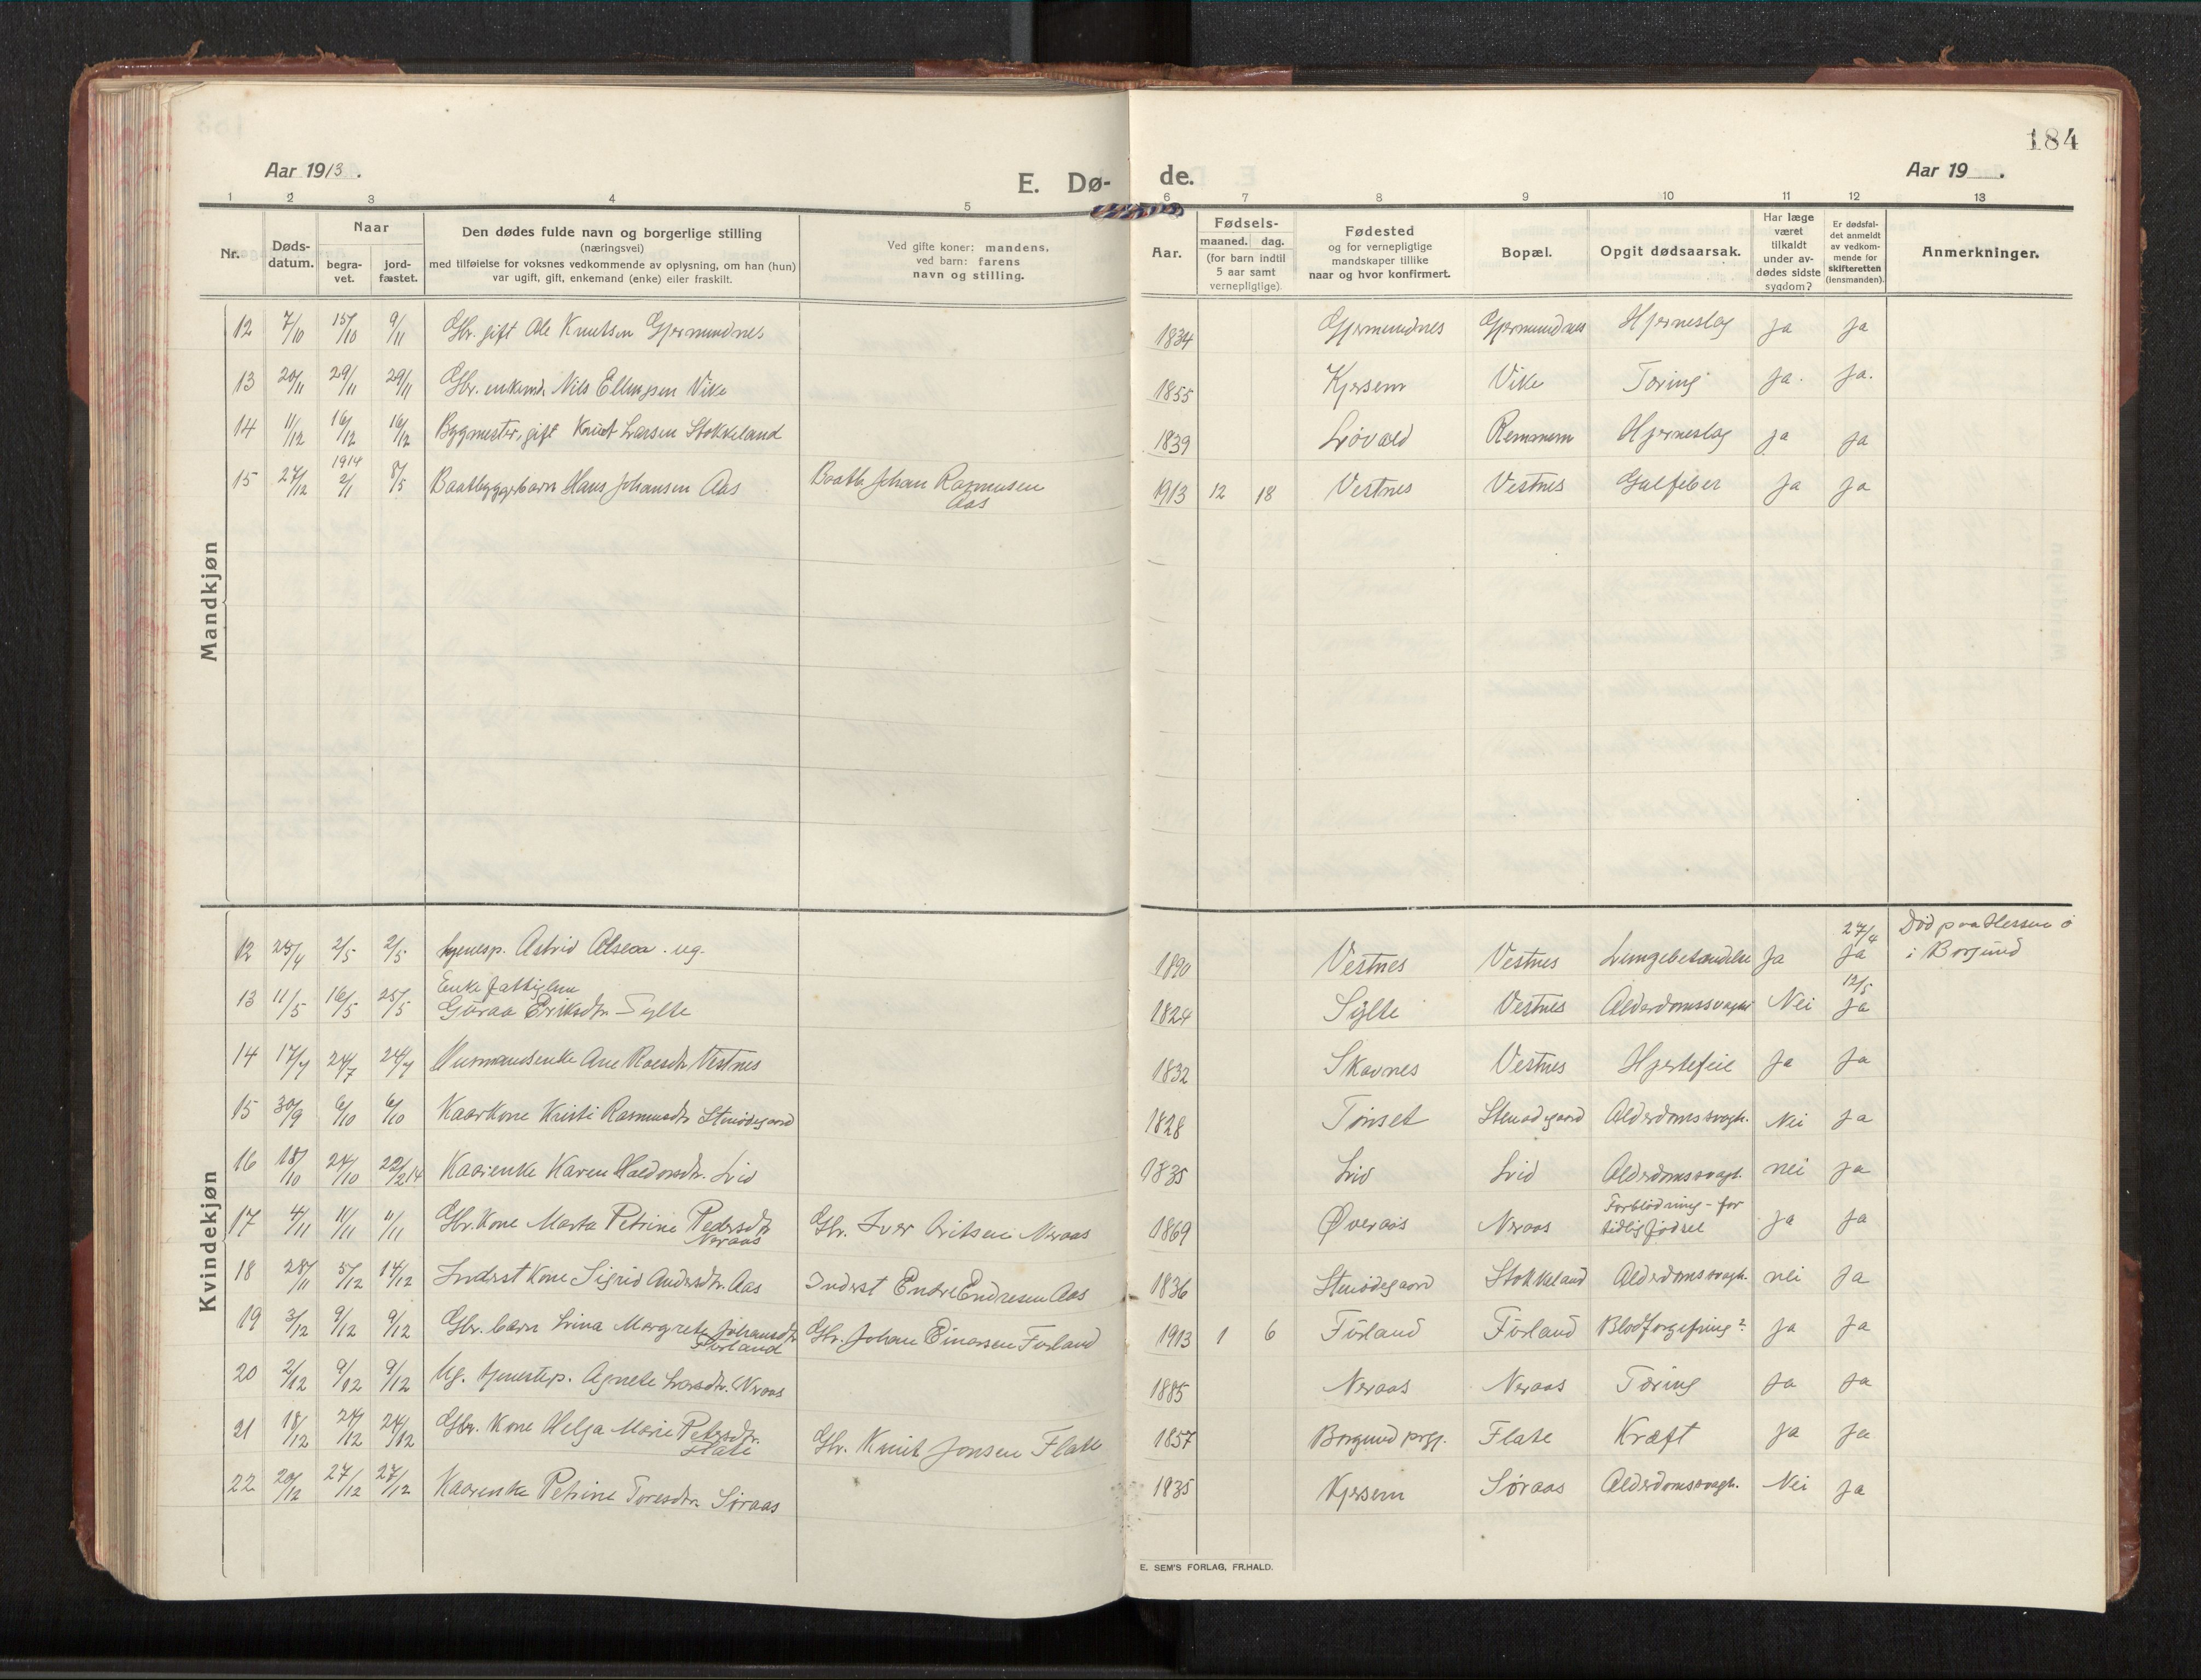 184
Aar 1913.
E. Dø- de.
Aar 19 .
1 2 3 4 5 6 7 8 9 10 11 12 13
Nr.
Døds-
datum.
Naar
begra-
vet.
jord-
fæstet.
Den dødes fulde navn og borgerlige stilling
(næringsvei)
med tilføielse for voksnes vedkommende av oplysning, om han (hun)
var ugift, gift, enkemand (enke) eller fraskilt.
Ved gifte koner: mandens,
ved barn: farens
navn og stilling.
Aar.
Fødsels-
maaned. dag.
(for barn indtil
5 aar samt
vernepligtige).
Fødested
og for vernepligtige
mandskaper tillike
naar og hvor konfirmert.
Bopæl.
Opgit dødsaarsak.
Har læge
været
tilkaldt
under av-
dødes sidste
sygdom?
Er dødsfal-
det anmeldt
av vedkom-
mende for
skifteretten
(lensmanden).
Anmerkninger.
Mandkjøn
12 7/10 15/10 9/11 Gbr. gift Ole Knutsen Gjermundnes 1834 Gjermundnes Gjermundnes Hjerneslag ja ja
13 20/11 29/11 29/11 Gbr. enkemd. Nils Ellingsen Vike 1855 Kjersem Vike Tæring ja. ja.
14 11/12 16/12 16/12 Bygmester, gift Knut Larsen Stokkeland 1839 Løvold Remmem Hjerneslag ja ja
1914
15 27/12 2/1 8/5 Baatbyggerbarn Hans Johansen Aas Baatb. Johan Rasmusen 1913 12 18 Vestnes Vestnes Gulfeber ja ja
Aas
Kvindekjøn
27/4 Død paa Hessen ø
12 25/4 2/5 2/5 tjenesp. Astrid Olsen. ug. 1890 Vestnes Vestnes Lungebetændelse ja ja i Borgund
Enke fattiglem 12/5
13 11/5 16/5 25/5 Guraa Eriksdtr. Sylte 1824 Sylte Vestnes Alderdomssvaghet Nei ja
14 17/7 24/7 24/7 Husmandsenke Ane Roesdtr. Vestnes 1832 Skavnes Vestnes Hjertefeil ja ja
15 30/9 6/10 6/10 Kaarkone Kristi Rasmusdtr. Stenødegaard 1828 Tønset Stenødegaard Alderdomssvagh. Nei ja
16 18/10 24/10 22/2 14 Kaarenke Karen Haldorsdtr. Lid 1835 Lid Lid Alderdomssvagh. nei ja
17 4/11 11/11 11/11 Gbr. Kone Marta Petrine Pedersdtr. Gbr. Iver Eriksen Neraas 1869 Øveraas Neraas Forblødning - for ja ja
Neraas tidlig fødsel
18 28/11 5/12 14/12 Inderst Kone Sigrid Andersdtr. Aas Inderst Endre Endresen Aas 1836 Stenødegaard Stokkeland Alderdomssvagh. nei ja
19 3/12 9/12 9/12 Gbr. barn Lina Margrete Johansdtr. Gbr. Johan Einarsen Furland 1913 1 6 Furland Furland Blodforgiftning? ja ja
Furland
20 2/12 9/12 9/12 Ug. tjenestep. Agnete Larsdtr. Neraas 1885 Neraas Neraas Tæring ja ja
21 18/12 24/12 24/12 Gbr. Kone Helga Marie Petersdtr. Gbr. Knut Jonsen Flate 1857 Borgund prgj. Flate Kræft ja ja
Flate
22 20/12 27/12 27/12 Kaarenke Petrine Toresdtr. Søraas 1835 Kjersem Søraas Alderdomssvagh. Nei ja
E. SEM'S FORLAG, FR.HALD.